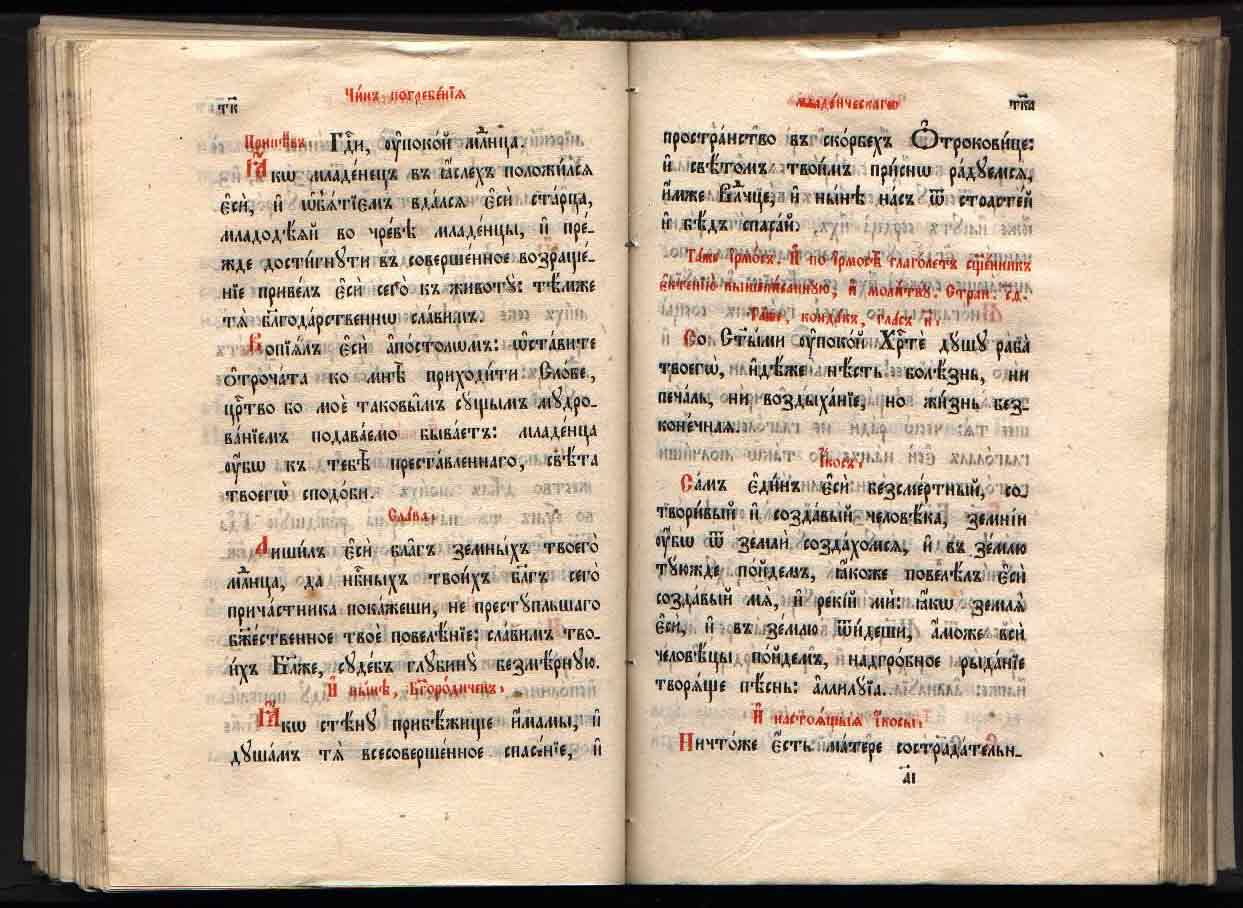 тк҃
Чи́нъ погребе́нїѧ
Припѣ́въ. Гдⷭ҇и, ᲂу҆поко́й млⷣнца.
Ꙗ҆́кѡ младе́нецъ въ ꙗ҆́слехъ положи́лсѧ
є҆сѝ, и҆ ѡ҆б̾ѧ́тїемъ вда́лсѧ є҆сѝ ста́рца,
младодѣ́ѧй во чре́вѣ младе́нцы, и҆ пре́-
жде дости́гнꙋти въ соверше́нное возраще́-
нїе приве́лъ є҆сѝ сего̀ къ животꙋ̀: тѣ́мже
тѧ̀ блг҃ода́рственнѡ сла́вимъ.
Вопїѧ́лъ є҆сѝ а҆пⷭ҇толѡмъ: ѡ҆ста́вите
ѻ҆троча́та ко мнѣ̀ приходи́ти: Сло́ве,
црⷭ҇тво бо моѐ таковы̑мъ сꙋ́щымъ мꙋдро-
ва́нїемъ подава́емо быва́етъ: младе́нца
ᲂу҆̀бѡ къ тебѣ̀ преста́вленнаго, свѣ́та
твоегѡ̀ сподо́би.
Сла́ва.
Лиши́лъ є҆сѝ бла̑гъ земны́хъ твоего̀
млⷣнца, да нбⷭ҇ныхъ твои́хъ бла̑гъ сего̀
прича́стника пока́жеши, не престꙋ́пльшаго
бжⷭ҇е́ственное твоѐ повелѣ́нїе: сла́вимъ тво-
и́хъ Бл҃же, сꙋде́бъ глꙋбинꙋ̀ безмѣ́рнꙋю.
И҆ ны́нѣ, Бг҃оро́диченъ.
Ꙗ҆́кѡ стѣ́нꙋ прибѣ́жище и҆́мамы, и҆
дꙋша́мъ тѧ̀ всесоверше́нное спасе́нїе, и҆
младе́нческагѡ
тк҃а
простра́нство въ ско́рбехъ Ѻ҆трокови́це:
и҆ свѣ́томъ твои́мъ при́снѡ ра́дꙋемсѧ,
и҆́мже Влⷣчце, и҆ ны́нѣ на́съ ѿ страсте́й
и҆ бѣ́дъ спаса́й.
Та́же і҆рмо́съ. И҆ по і҆рмосѣ̀ глаго́летъ сщ҃е́нникъ
є҆ктенїю̀ вышепи́саннꙋю, и҆ моли́твꙋ. Стран.
Та́же, конда́къ, гла́съ и҃.
Со Ст҃ы́ми ᲂу҆поко́й Хрⷭ҇тѐ дꙋ́шꙋ раба̀
твоегѡ̀, и҆дѣ́же нѣ́сть болѣ́знь, ни
печа́ль, ни воздыха́нїе, но жи́знь без-
коне́чнаѧ.
І҆́косъ.
Са́мъ є҆ди́нъ є҆сѝ безсме́ртный, со-
твори́вый и҆ созда́вый человѣ́ка, земні́и
ᲂу҆̀бѡ ѿ землѝ созда́хомсѧ, и҆ въ зе́млю
тꙋю́жде по́йдемъ, ꙗ҆́коже повелѣ́лъ є҆сѝ
созда́вый мѧ̀, и҆ реки́й мѝ: ꙗ҆́кѡ землѧ̀
є҆сѝ, и҆ въ зе́млю ѿи́деши, а҆́може всѝ
человѣ́цы по́йдемъ, надгро́бное рыда́нїе
творѧ́ще пѣ́снь: а҆ллилꙋ́їа.
И҆ настоѧ́щыѧ і҆́косы.
Ничто́же є҆́сть ма́тере сострада́тельн-
а҃і